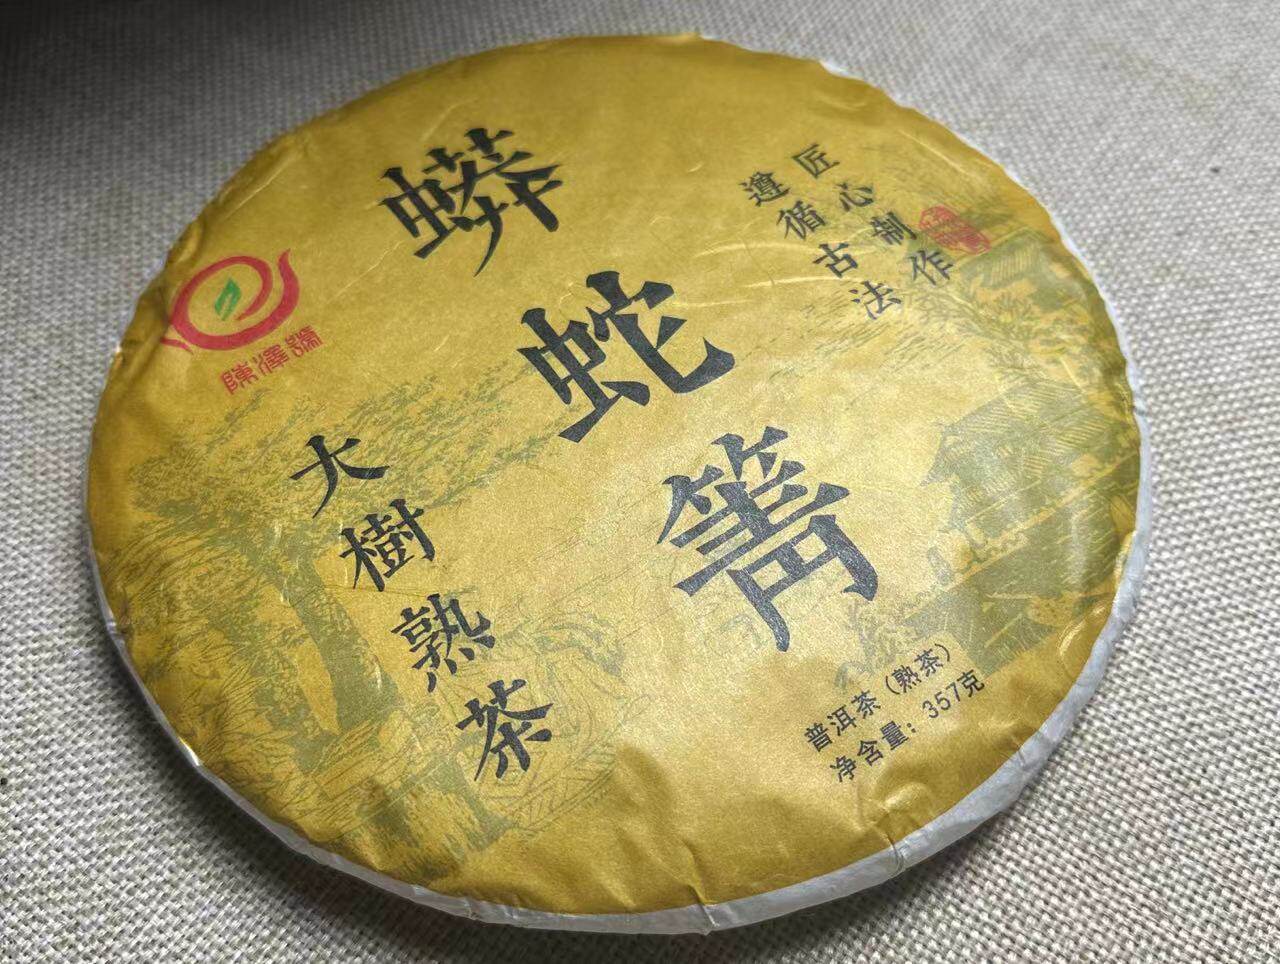 蟒蛇箐
匠心制作
遵循古法
陳澤瑞
大樹熟茶
普洱茶（熟茶）
净含量：357克